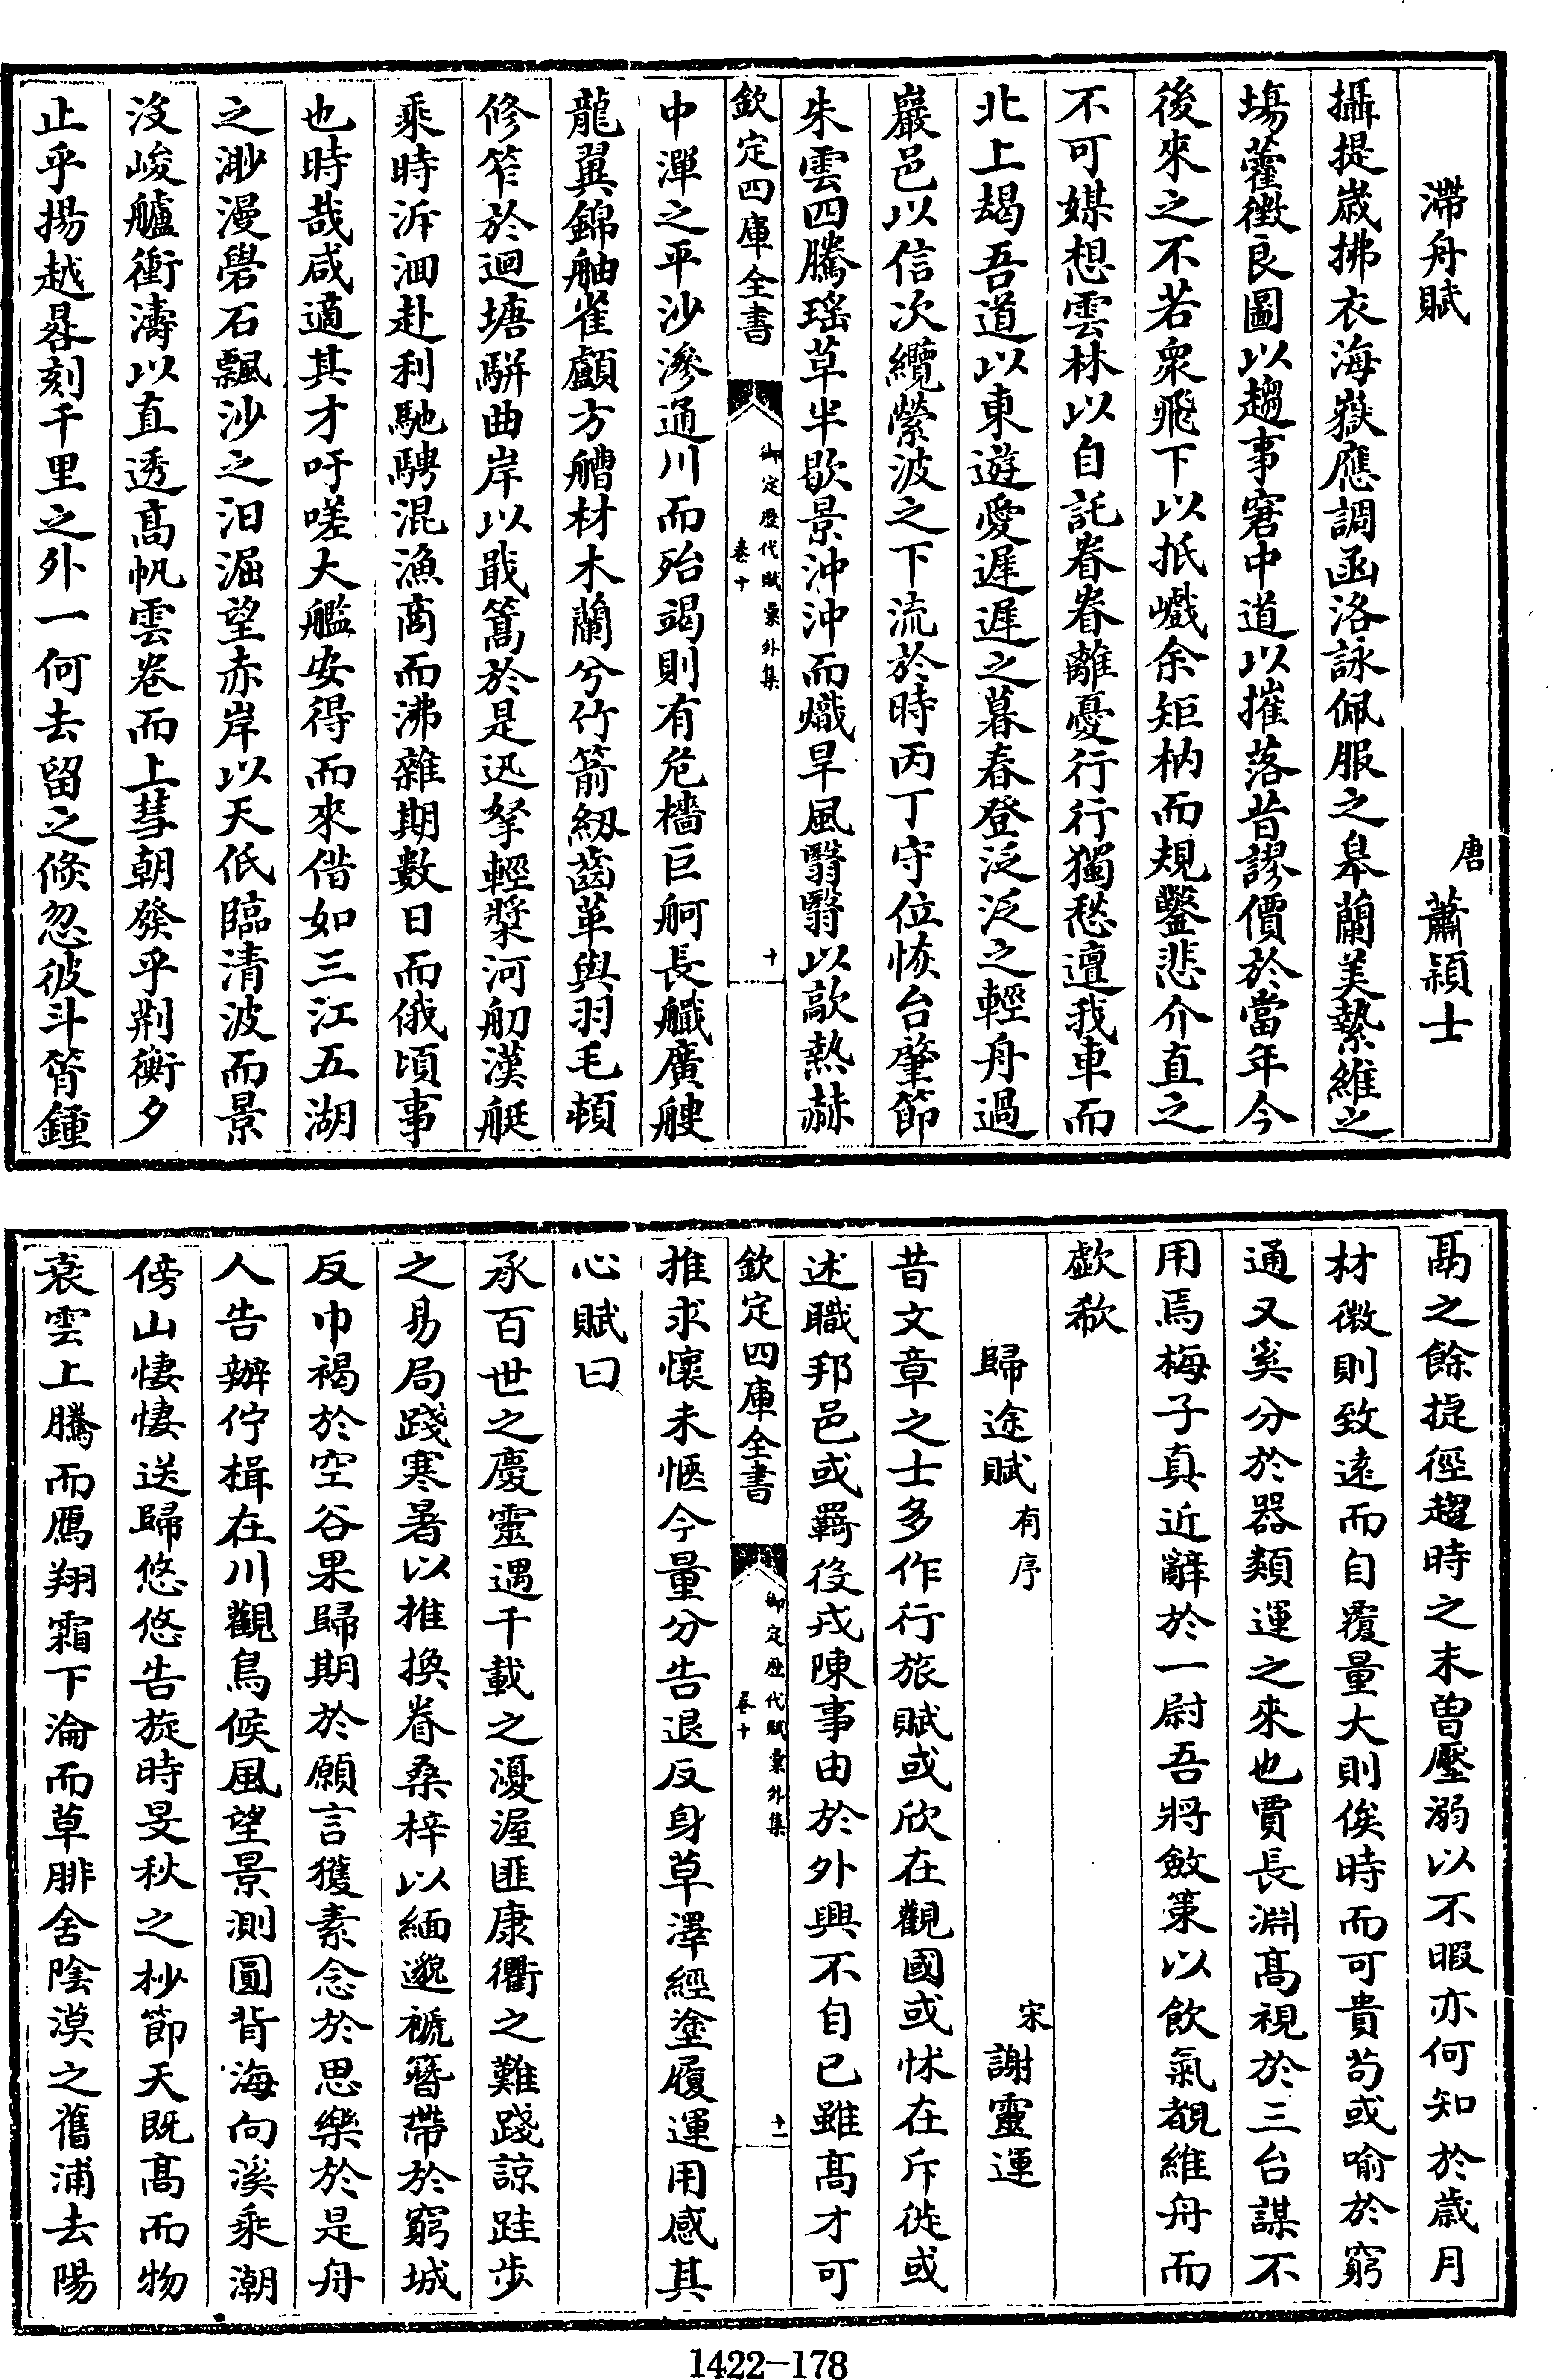 滯舟賦
唐
蕭穎士
攝提歲拂衣海嶽應調函洛詠佩服之皋蘭美縶維之
塲藿徴良圖以趨事窘中道以摧落昔謬價於當年今
後來之不若衆飛下以抵巇余矩枘而規鑿悲介直之
不可媒想雲林以自託眷眷離憂行行獨愁邅我車而
北上朅吾道以東遊愛遲遲之暮春登泛泛之輕舟過
巖邑以信次纜縈波之下流於時丙丁守位恢台肇節
朱雲四騰瑤草半歇景沖沖而熾旱風翳翳以歊熱赫
欽定四庫全書
御定歴代賦彙外集
卷十
十
中潬之平沙滲通川而殆竭則有危檣巨舸長艬廣艘
龍翼錦舳雀顱方艚材木蘭兮竹箭紉齒革與羽毛頓
修笮於迴塘駢曲岸以戢篙於是迅拏輕槳河舠漢艇
乘時泝洄赴利馳騁混漁商而沸雜期數日而俄頃事
也時哉咸適其才吁嗟大艦安得而來偕如三江五湖
之渺漫礐石飄沙之汨淈望赤岸以天低臨清波而景
沒峻艫衝濤以直透高帆雲卷而上彗朝發乎荆衡夕
止乎揚越晷刻千里之外一何去留之倏忽彼斗筲鍾
鬲之餘捷徑趨時之末曽壓溺以不暇亦何知於歲月
材微則致遠而自覆量大則俟時而可貴苟或喻於窮
通又奚分於器類運之來也賈長淵高視於三台謀不
用焉梅子真近辭於一尉吾將斂䇿以飲氣覩維舟而
歔欷
歸途賦有序
宋
謝靈運
昔文章之士多作行旅賦或欣在觀國或怵在斥徙或
述職邦邑或羇役戎陳事由於外興不自已雖高才可
欽定四庫全書
御定歴代賦彙外集
卷十
十一
推求懷未愜今量分告退反身草澤經塗履運用感其
心賦曰
承百世之慶靈遇千載之優渥匪康衢之難踐諒跬步
之易局踐寒暑以推換眷桑梓以緬邈褫簪帶於窮城
反巾褐於空谷果歸期於願言獲素念於思樂於是舟
人告辦佇楫在川觀鳥候風望景測圓背海向溪乘潮
傍山悽悽送歸悠悠告旋時旻秋之杪節天既高而物
衰雲上騰而鴈翔霜下淪而草腓舍陰漠之舊浦去陽
1422—178